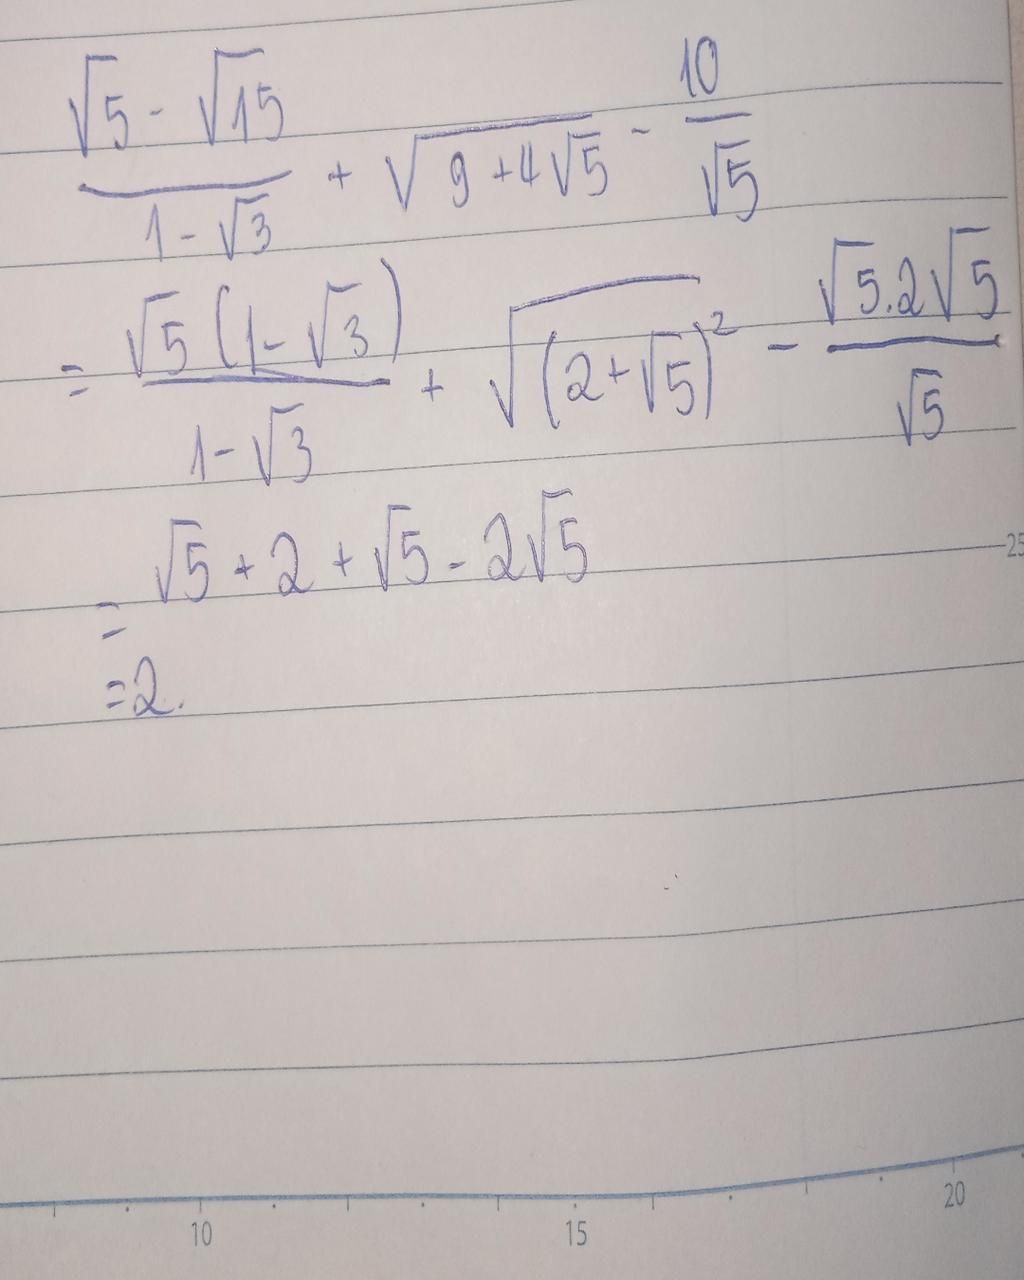 (√5 - √15)/(1 - √3) + √(9 + 4√5) - 10/√5
= (√5 (1 - √3))/(1 - √3) + √((2 + √5)²) - (√5.2√5)/√5
= √5 + 2 + √5 - 2√5
= 2.
25
10 15 20